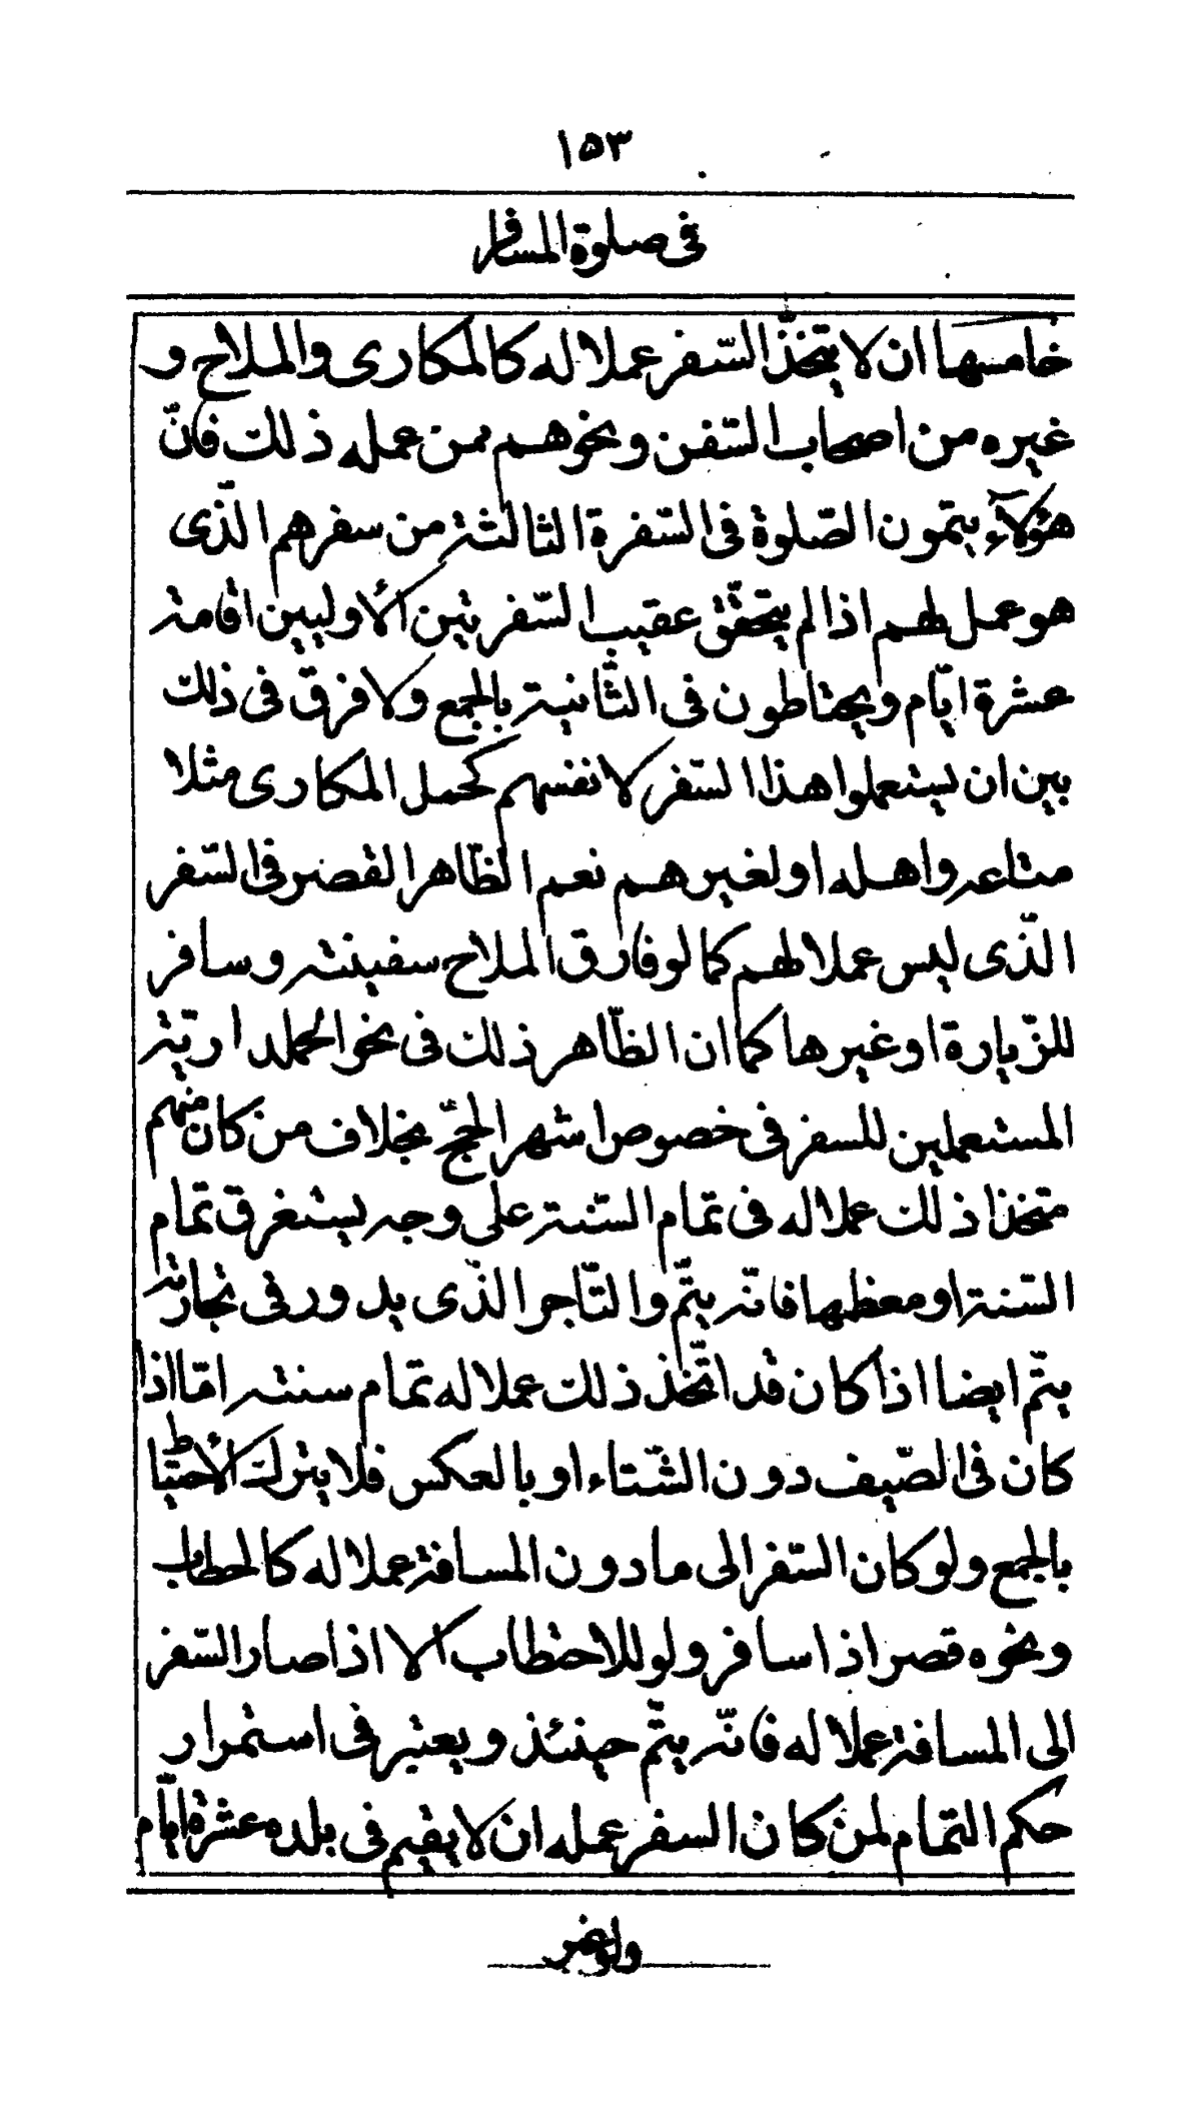 ١٥٣
فى صلوة المسافر
خامسها ان لا يتخذ السّفر عملا له كالمكارى والملاح و
غيره من اصحاب السّفن ونحوهم ممن عمله ذلك فانّ
هؤلآء يتمون الصّلوة فى السّفرة الثالثة من سفرهم الّذى
هو عمل لهم اذا لم يتحقّق عقيب السّفرتين الأوليين اقامة
عشرة ايّام ويحتاطون فى الثّانية بالجمع ولا فرق فى ذلك
بين ان يستعملوا هذا السّفر لانفسهم كحمل المكارى مثلا
متاعه واهله او لغيرهم نعم الظّاهر القصر فى السّفر
الّذى ليس عملا لهم كما لو فارق الملاح سفينته وسافر
للزّيارة او غيرها كما ان الظّاهر ذلك فى نحو الحملدارّية
المستعملين للسفر فى خصوص اشهر الحجّ بخلاف من كان منهم
متخذا ذلك عملا له فى تمام السّنة على وجه يستغرق تمام
السّنة او معظمها فانّه يتمّ والتّاجر الّذى يدور فى تجارته
يتمّ ايضا اذا كان قد اتّخذ ذلك عملا له تمام سنته امّا اذا
كان فى الصّيف دون الشّتاء او بالعكس فلا يترك الأحتياط
بالجمع ولو كان السّفر الى ما دون المسافة عملا له كالحطاب
ونحوه قصر اذا سافر ولو للاحتطاب الا اذا صار السّفر
الى المسافة عملا له فانّه يتمّ حينئذ ويعتبر فى استمرار
حكم التمام لمن كان السفر عمله ان لا يقيم فى بلده عشرة ايّام